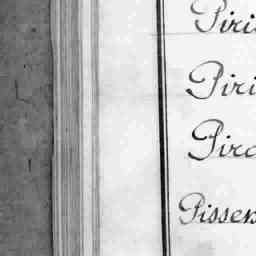 Piri
Piri
Piro
Pissen